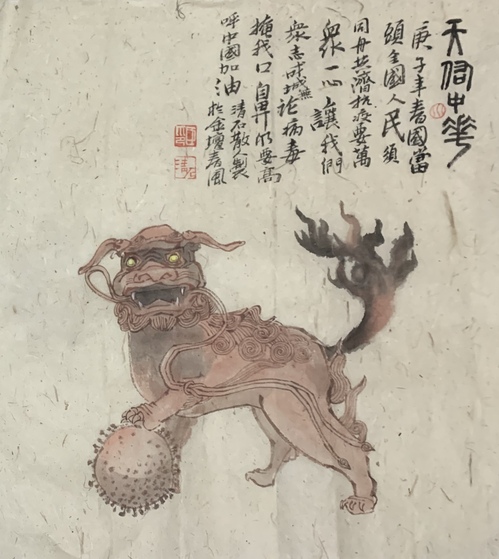 天佑中華
庚子年春國當
頭全國人民須
同舟共濟抗疫要萬
眾一心讓我們
眾志成城無論病毒
掩我口鼻仍要高
呼中國加油
清石散製
於金壇春風